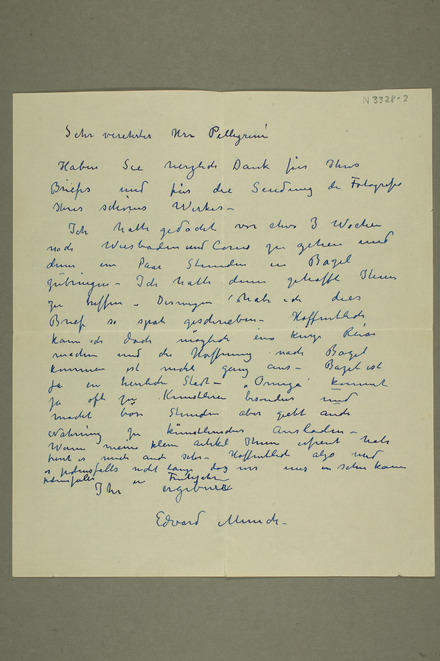 N 3328-2
Sehr verehrter Herr Pellegrini
Haben Sie herzlich Dank für Ihres
Briefes und für die Sendung der Fotografie
Ihres schönes Werkes –
Ich hatte gedacht vor etwa 3 Wochen
nach Wiesbaden und zu gehen und
dann ein Paar Stunden in Bagel
zubringen – Ich hatte dann gehofft Ihnen
zu treffen – Deswegen habe ich dies
Brief so spät geschrieben – Hoffentlich
kann ich doch möglich eine kurze Reise
machen und die Hoffnung nach Bagel
kommen ist nicht ganz aus – Bagel ist
ja ein herrliche Stadt – kommt
ja oft Künstleren besonders und
macht böse Stunden aber giebt auch
Nahrung zu künstlerisches Ausladen –
Wenn meine klein artikel Ihnen erfreut hat
freut es mich auch sehr – Hoffentlich also und
es jedenfalls nicht lange das wir uns en sehen kann
jedenfalls im Frühjahr
Ihr ergebner
Edvard Munch –